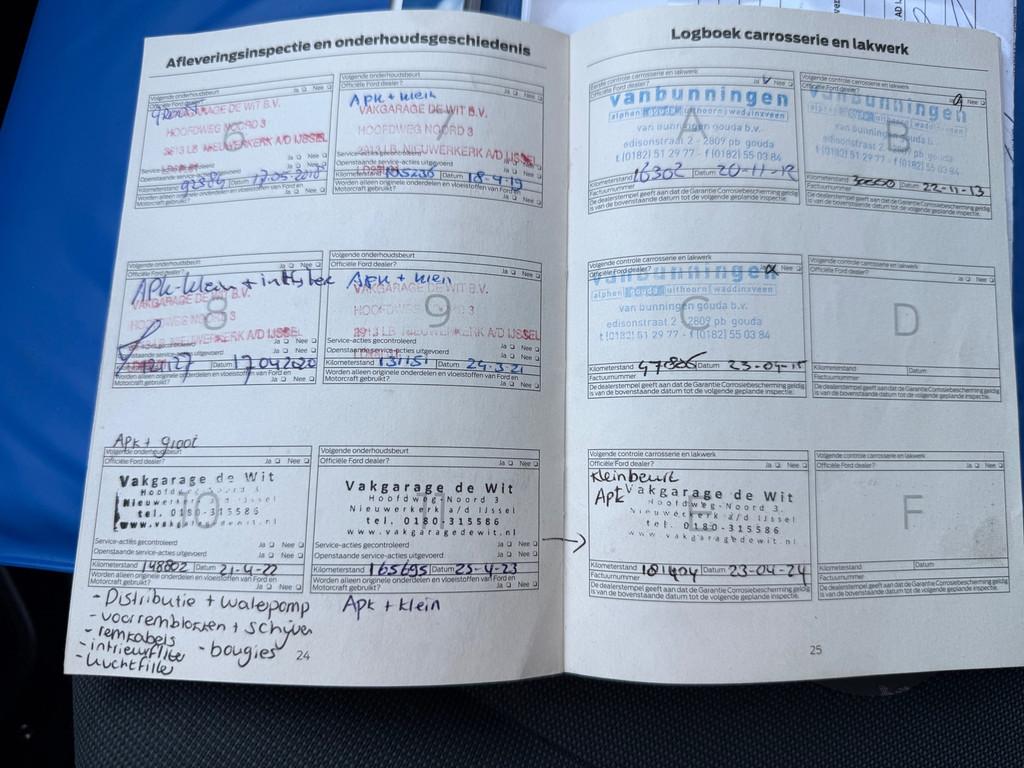 Afleveringsinspectie en onderhoudsgeschiedenis
Volgende onderhoudsbeurt
Ja Nee
VAKGARAGE DE WIT B.V.
HOOFDWEG NOORD 3
2913 LB NIEUWERKERK A/D IJSSEL
6
Openstaande service-acties uitgevoerd
Kilometerstand Datum 17.05.2018
Worden alleen originele onderdelen en vloeistoffen van Ford en
Motorcraft gebruikt?
Volgende onderhoudsbeurt
Officiële Ford dealer? Ja Nee
Apk + klein
VAKGARAGE DE WIT B.V.
HOOFDWEG NOORD 3
2913 LB NIEUWERKERK A/D IJSSEL
7
Openstaande service-acties uitgevoerd
Kilometerstand 105230 Datum 18-4-19
Worden alleen originele onderdelen en vloeistoffen van Ford en
Motorcraft gebruikt?
Volgende onderhoudsbeurt
Officiële Ford dealer? Ja Nee
APK-klein +
VAKGARAGE DE WIT B.V.
HOOFDWEG NOORD 3
NIEUWERKERK A/D IJSSEL
8
Datum 17.04.2020
Worden alleen originele onderdelen en vloeistoffen van Ford en
Motorcraft gebruikt?
Volgende onderhoudsbeurt
Officiële Ford dealer? Ja Nee
Apk + klein
VAKGARAGE DE WIT B.V.
HOOFDWEG NOORD 3
2913 LB NIEUWERKERK A/D IJSSEL
9
Service-acties gecontroleerd
Openstaande service-acties uitgevoerd
Kilometerstand 131151 Datum 24-3-21
Worden alleen originele onderdelen en vloeistoffen van Ford en
Motorcraft gebruikt?
Apk + groot
Volgende onderhoudsbeurt
Officiële Ford dealer? Ja Nee
Vakgarage de Wit
Hoofdweg-Noord 3
Nieuwerkerk a/d IJssel
tel. 0180-315586
www.vakgaragedewit.nl
10
Service-acties gecontroleerd Ja Nee
Openstaande service-acties uitgevoerd Ja Nee
Kilometerstand 148802 Datum 21-4-22
Worden alleen originele onderdelen en vloeistoffen van Ford en
Motorcraft gebruikt? Ja Nee
- Distributie + waterpomp
- voorremblokken + schijven
- remkabels
- interieurfilter - bougies
- luchtfilter
Volgende onderhoudsbeurt
Officiële Ford dealer? Ja Nee
Vakgarage de Wit
Hoofdweg-Noord 3
Nieuwerkerk a/d IJssel
tel. 0180-315586
www.vakgaragedewit.nl
11
Service-acties gecontroleerd Ja Nee
Openstaande service-acties uitgevoerd Ja Nee
Kilometerstand 165695 Datum 25-4-23
Worden alleen originele onderdelen en vloeistoffen van Ford en
Motorcraft gebruikt? Ja Nee
Apk + klein
24
Logboek carrosserie en lakwerk
Eerste controle carrosserie en lakwerk
Officiële Ford dealer? Ja Nee
vanbunningen
alphen gouda uithoorn waddinxveen
van bunningen gouda b.v.
edisonstraat 2 - 2809 pb gouda
t (0182) 51 29 77 - f (0182) 55 03 84
A
Kilometerstand 16302 Datum 20-11-12
Factuurnummer
De dealerstempel geeft aan dat de Garantie Corrosiebescherming geldig
is van de bovenstaande datum tot de volgende geplande inspectie.
Volgende controle carrosserie en lakwerk
Officiële Ford dealer? Ja Nee
vanbunningen
alphen gouda uithoorn waddinxveen
van bunningen gouda b.v.
edisonstraat 2 - 2809 pb gouda
t (0182) 51 29 77 - f (0182) 55 03 84
B
Kilometerstand Datum 22-11-13
Factuurnummer
De dealerstempel geeft aan dat de Garantie Corrosiebescherming geldig
is van de bovenstaande datum tot de volgende geplande inspectie.
Volgende controle carrosserie en lakwerk
Officiële Ford dealer? Ja Nee
vanbunningen
alphen gouda uithoorn waddinxveen
van bunningen gouda b.v.
edisonstraat 2 - 2809 pb gouda
t (0182) 51 29 77 - f (0182) 55 03 84
C
Kilometerstand Datum 23-04-15
Factuurnummer
De dealerstempel geeft aan dat de Garantie Corrosiebescherming geldig
is van de bovenstaande datum tot de volgende geplande inspectie.
Volgende controle carrosserie en lakwerk
Officiële Ford dealer? Ja Nee
D
Kilometerstand Datum
Factuurnummer
De dealerstempel geeft aan dat de Garantie Corrosiebescherming geldig
is van de bovenstaande datum tot de volgende geplande inspectie.
Volgende controle carrosserie en lakwerk
Officiële Ford dealer? Ja Nee
Kleinbeurt
Apk
Vakgarage de Wit
Hoofdweg-Noord 3
Nieuwerkerk a/d IJssel
tel. 0180-315586
www.vakgaragedewit.nl
Kilometerstand 181404 Datum 23-04-24
Factuurnummer
De dealerstempel geeft aan dat de Garantie Corrosiebescherming geldig
is van de bovenstaande datum tot de volgende geplande inspectie.
Volgende controle carrosserie en lakwerk
Officiële Ford dealer? Ja Nee
F
Kilometerstand Datum
Factuurnummer
De dealerstempel geeft aan dat de Garantie Corrosiebescherming geldig
is van de bovenstaande datum tot de volgende geplande inspectie.
25